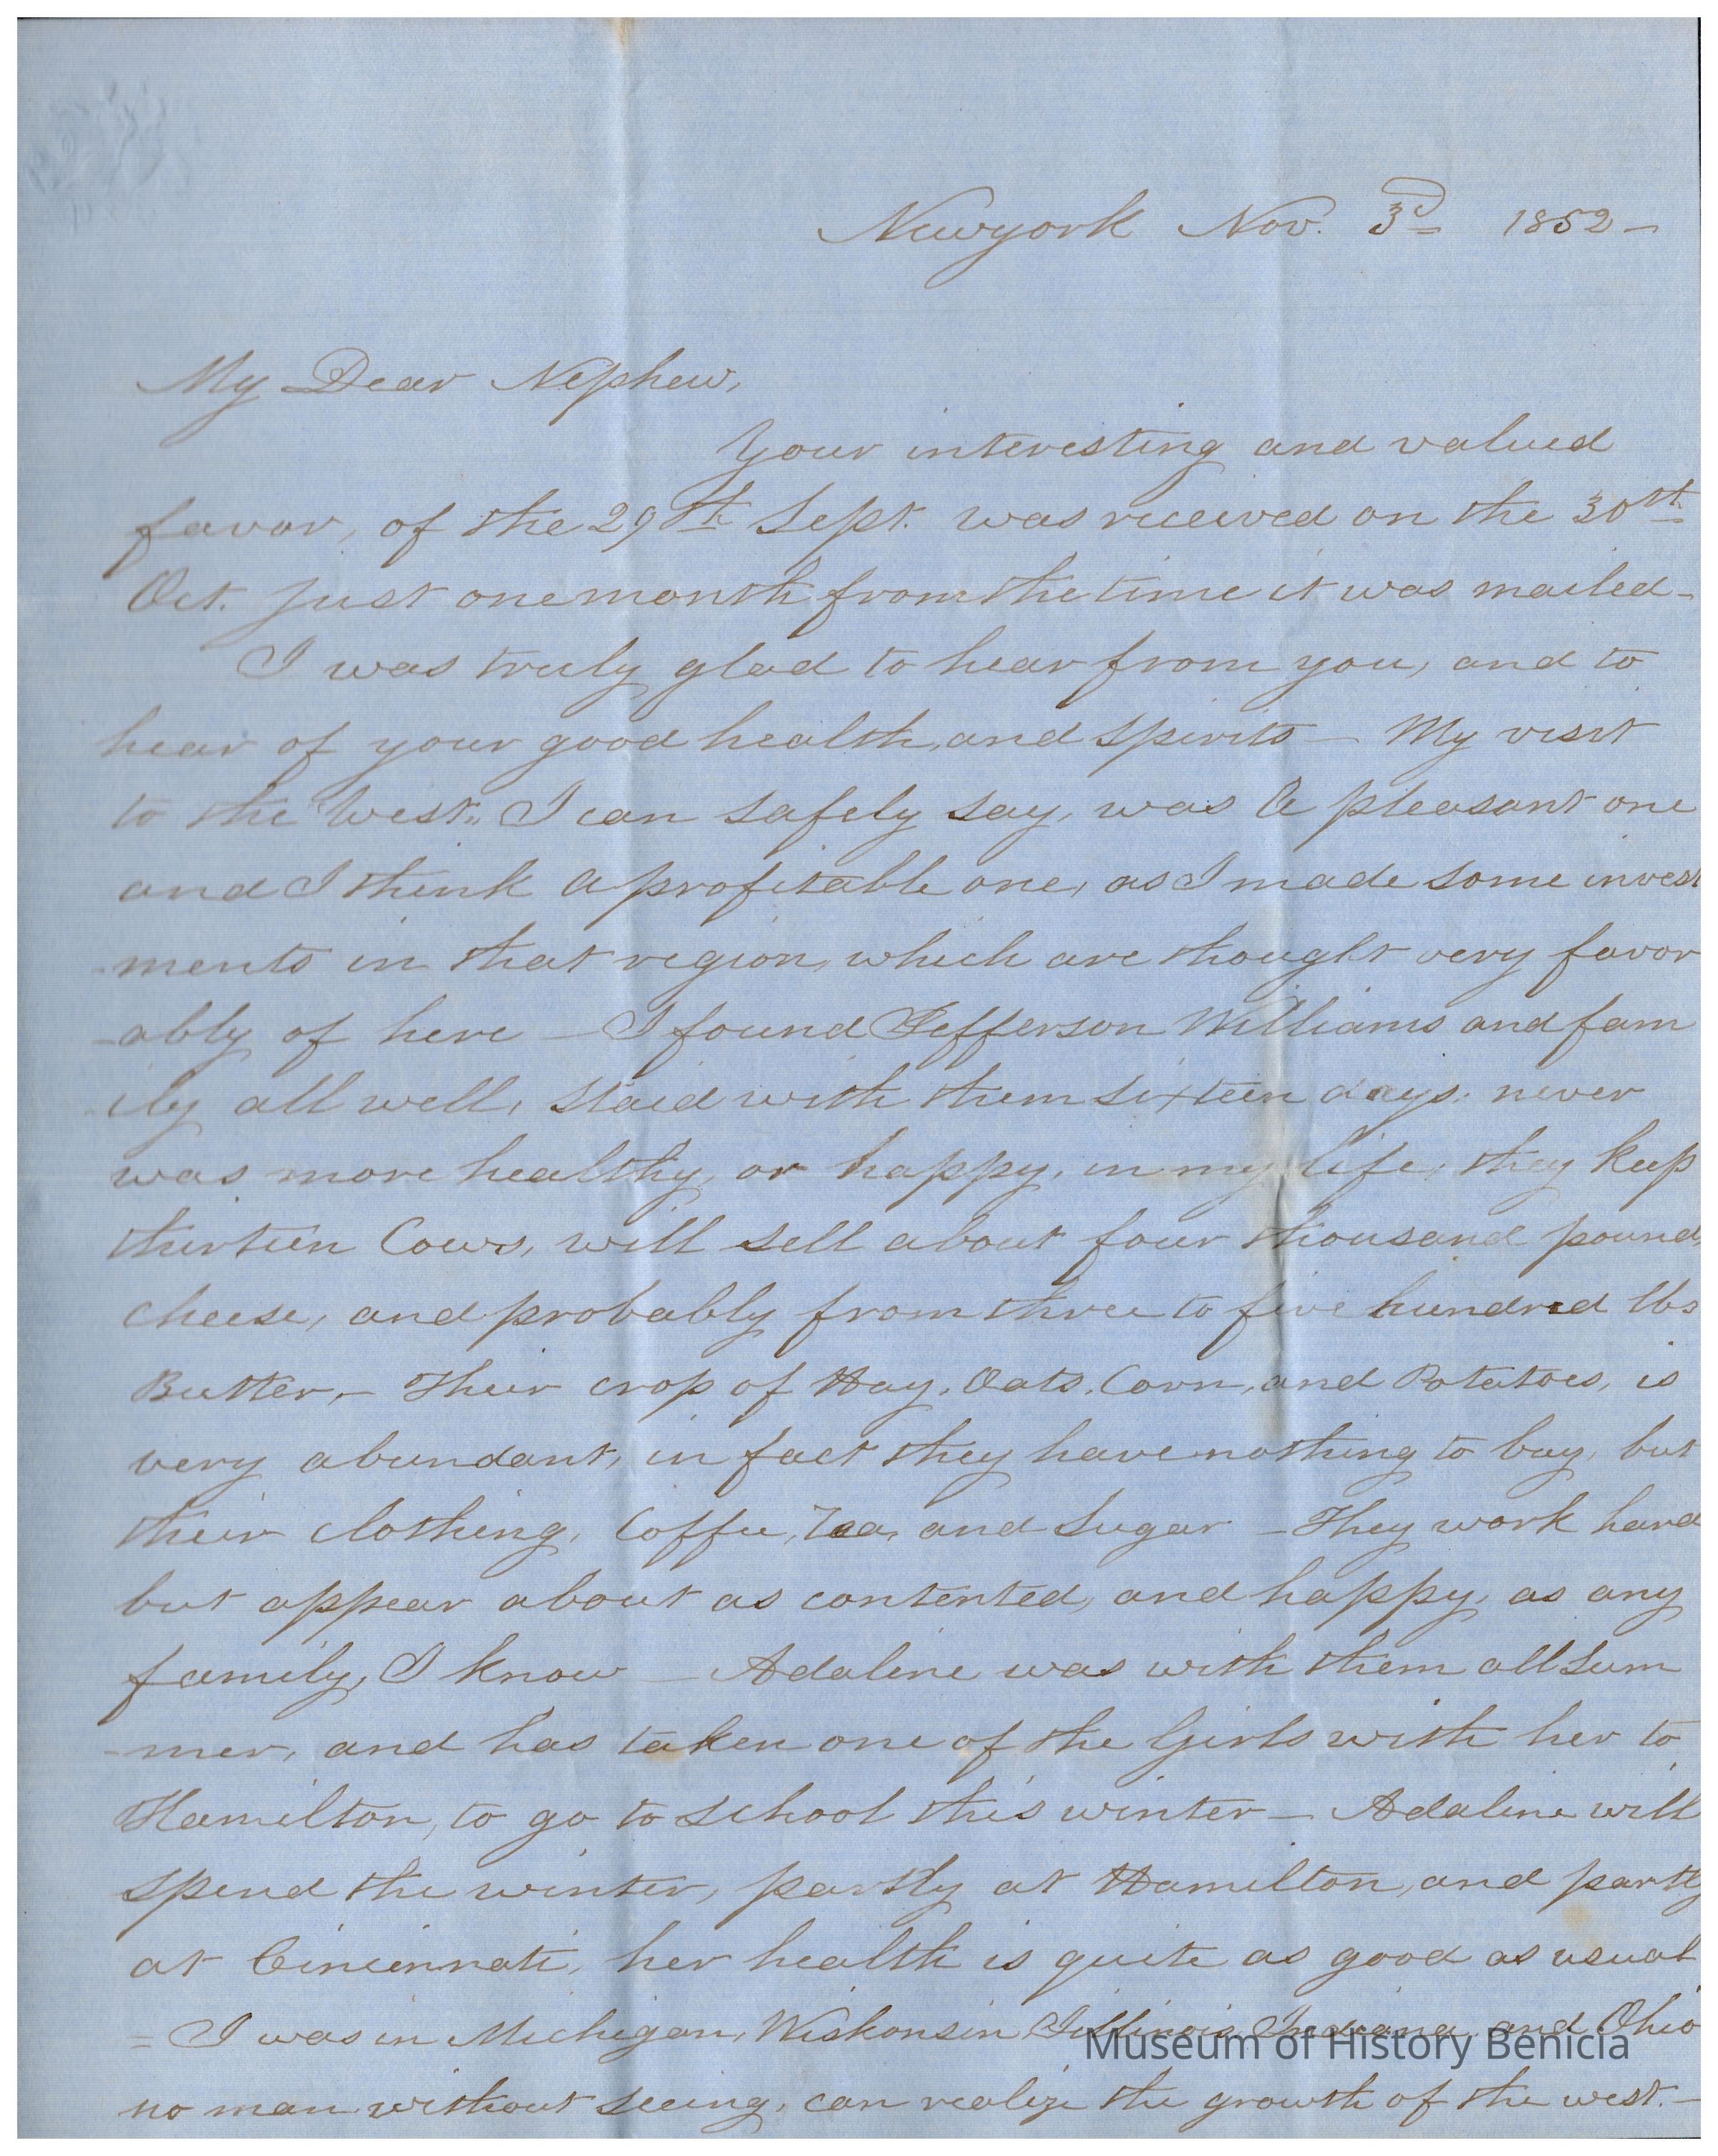 Newyork Nov. 3d 1852 -
My Dear Nephew,
Your interesting and valued
favor, of the 29th Sept. was received on the 30th
Oct. just one month from the time it was mailed -
I was truly glad to hear from you, and to
hear of your good health, and spirits - My visit
to the West, I can safely say, was a pleasant one
and I think a profitable one, as I made some invest
-ments in that region, which are thought very favor
-ably of here - I found Jefferson Williams and fam
-ily all well, staid with them sixteen days, never
was more healthy, or happy, in my life, they keep
thirteen Cows, will sell about four thousand pounds
cheese, and probably from three to five hundred lbs
Butter, - Their crop of Hay, Oats, Corn, and Potatoes, is
very abundant, in fact they have nothing to buy, but
their clothing, Coffee, Tea, and Sugar - They work hard
but appear about as contented, and happy, as any
family, I know - Adaline was with them all sum
-mer, and has taken one of the Girls with her to
Hamilton, to go to school this winter - Adaline will
spend the winter, partly at Hamilton, and partly
at Cincinnati, her health is quite as good as usual
= I was in Michigan, Wiskonsin, Illinois, Indiana, and Ohio
no man without seeing, can realize the growth of the west. -
Museum of History Benicia